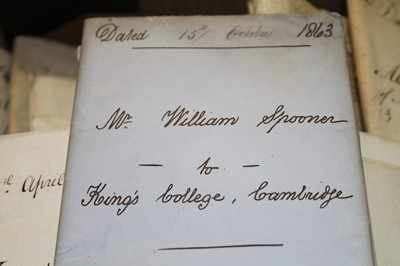 Dated 15th October 1863
Mr. William Spooner
— to —
King's College, Cambridge
April